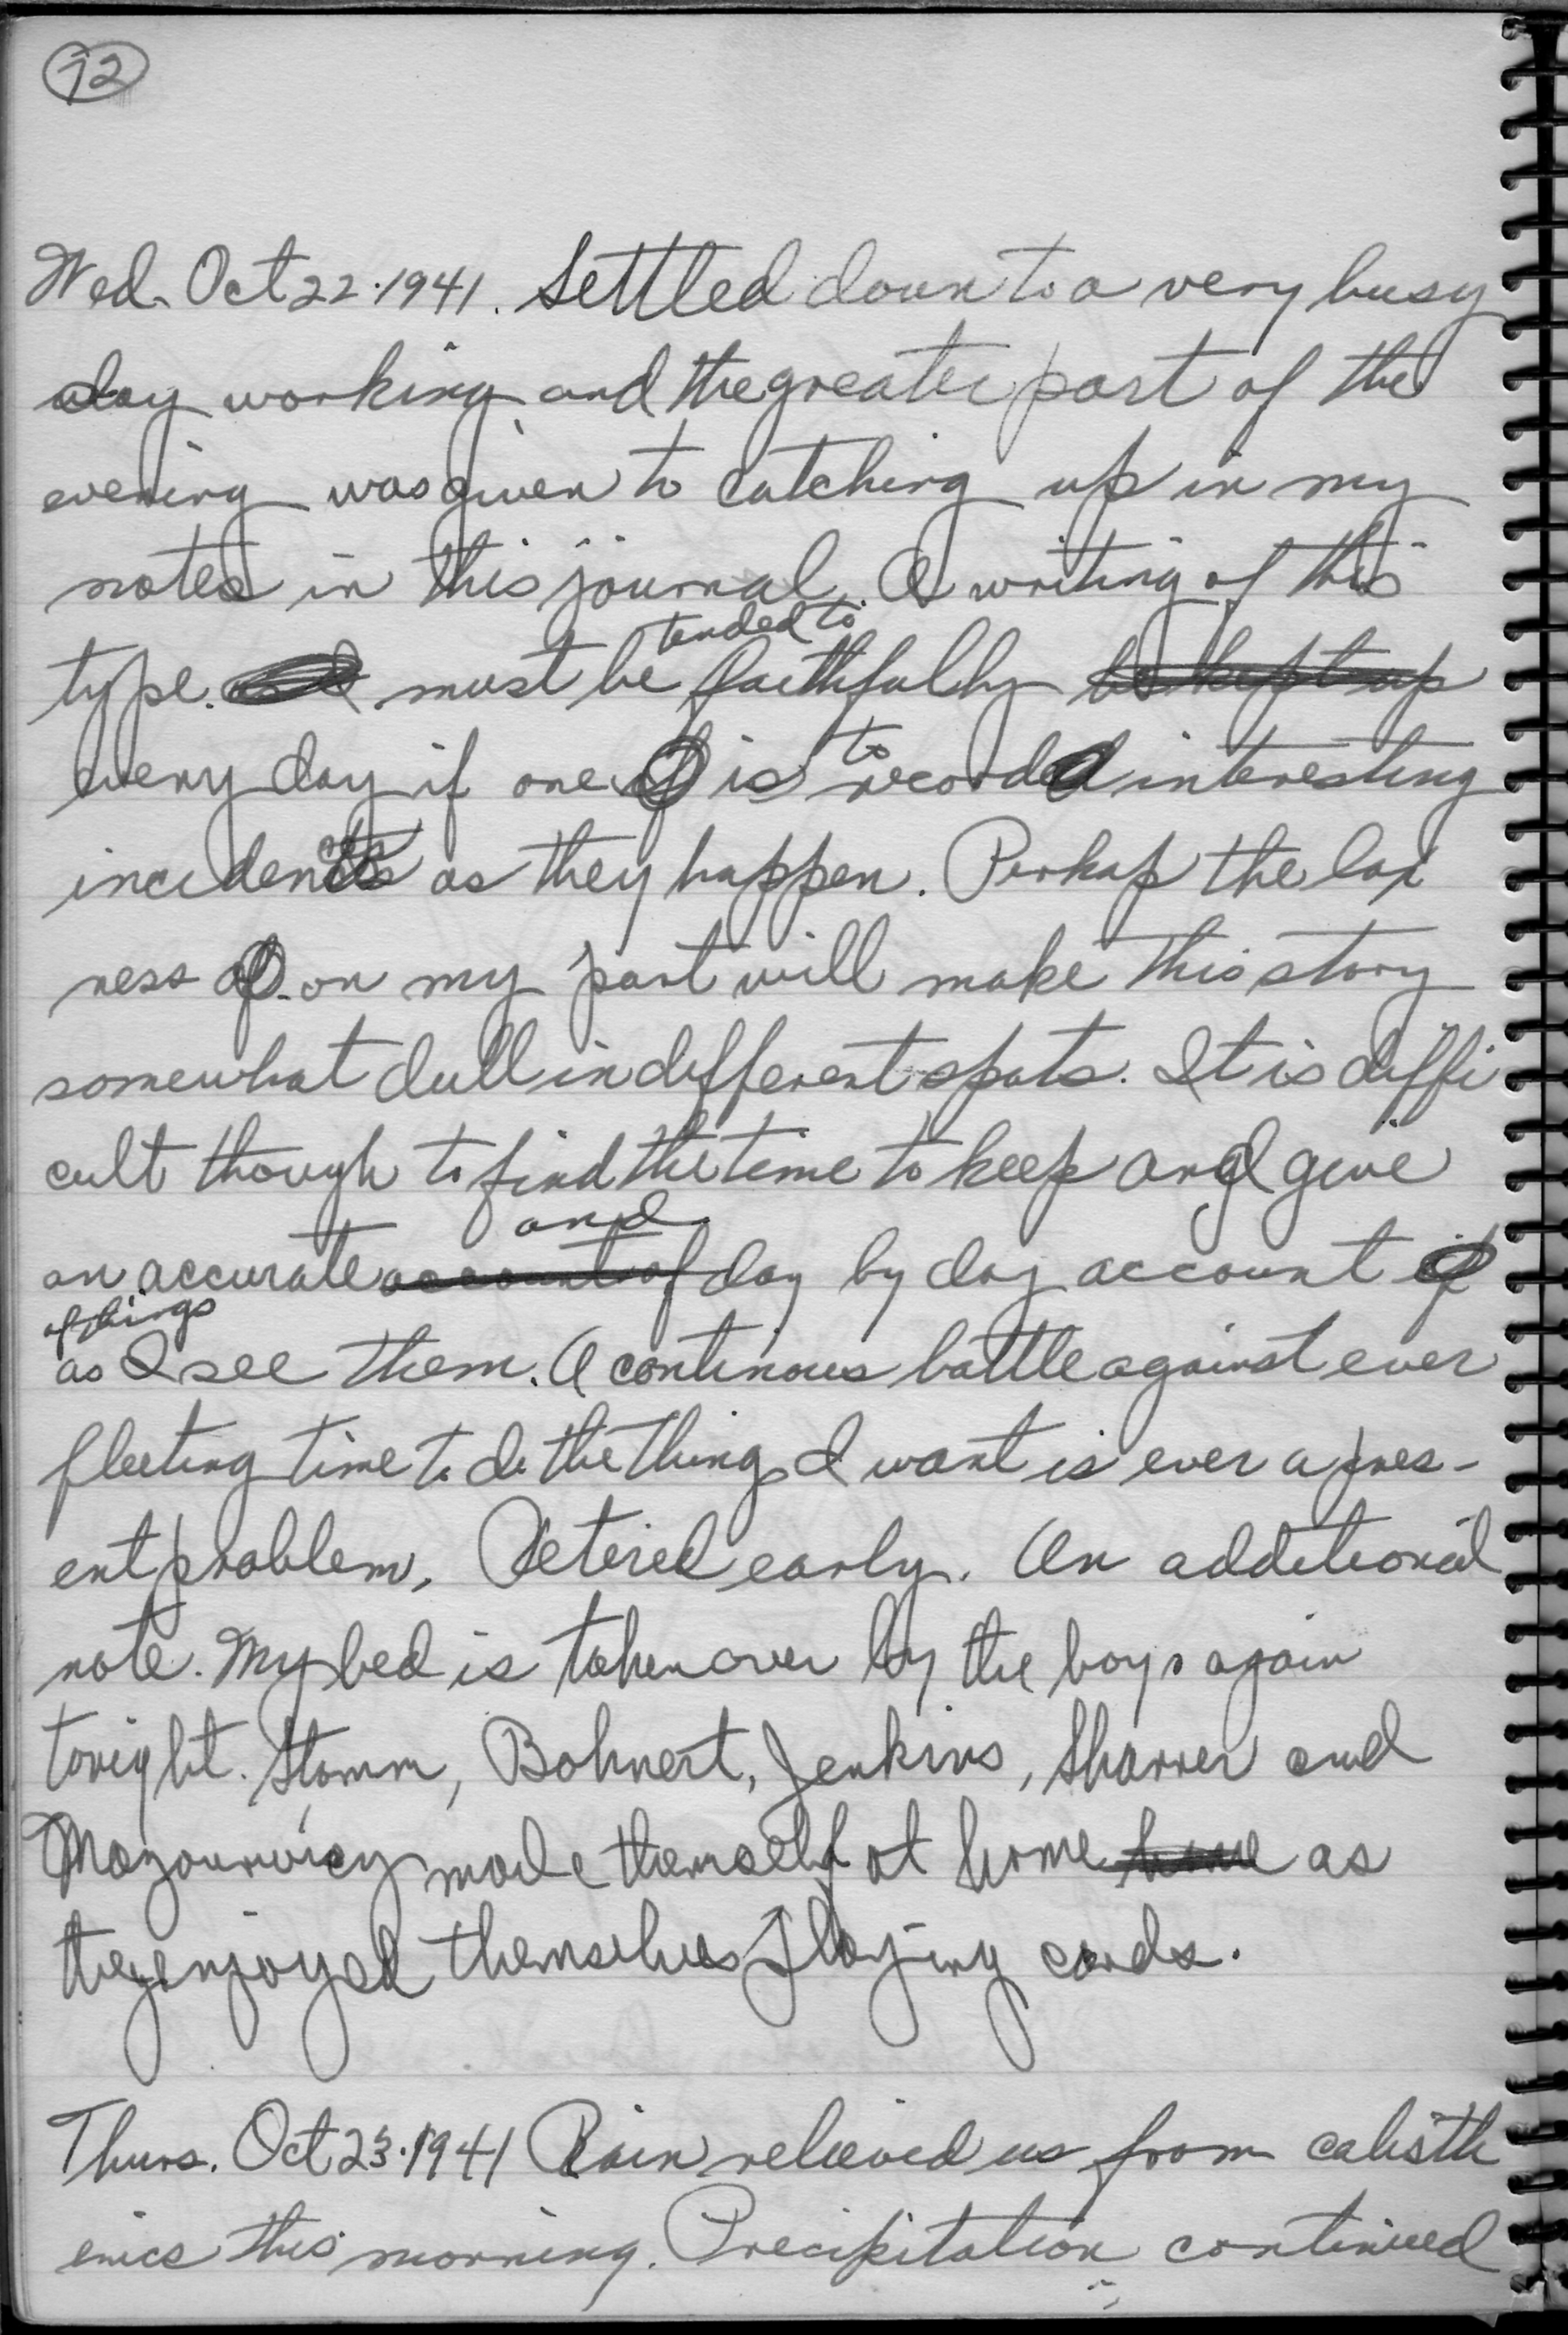 72
Wed. Oct 22. 1941. Settled down to a very busy
day working and the greater part of the
evening was given to catching up in my
notes in this journal. A writing of this
tended to
type. must be faithfully be kept up
to
every day if one is recorded interesting
incidents as they happen. Perhap the lax
ness of on my part will make this story
somewhat dull in different spots. It is diffi
cult though to find the time to keep and give
and
an accurate account of day by day account of
of things
as I see them. A continous battle against ever
fleeting time to do the things I want is ever a pres-
ent problem. Retired early. An additional
note. My bed is taken over by the boys again
tonight. Stamm, Bohnert, Jenkins, Sharrer and
made themself at home home as
they enjoyed themselves playing cards.
Thurs. Oct 23. 1941 Rain relieved us from calisth
enics this morning. Precipitation continued